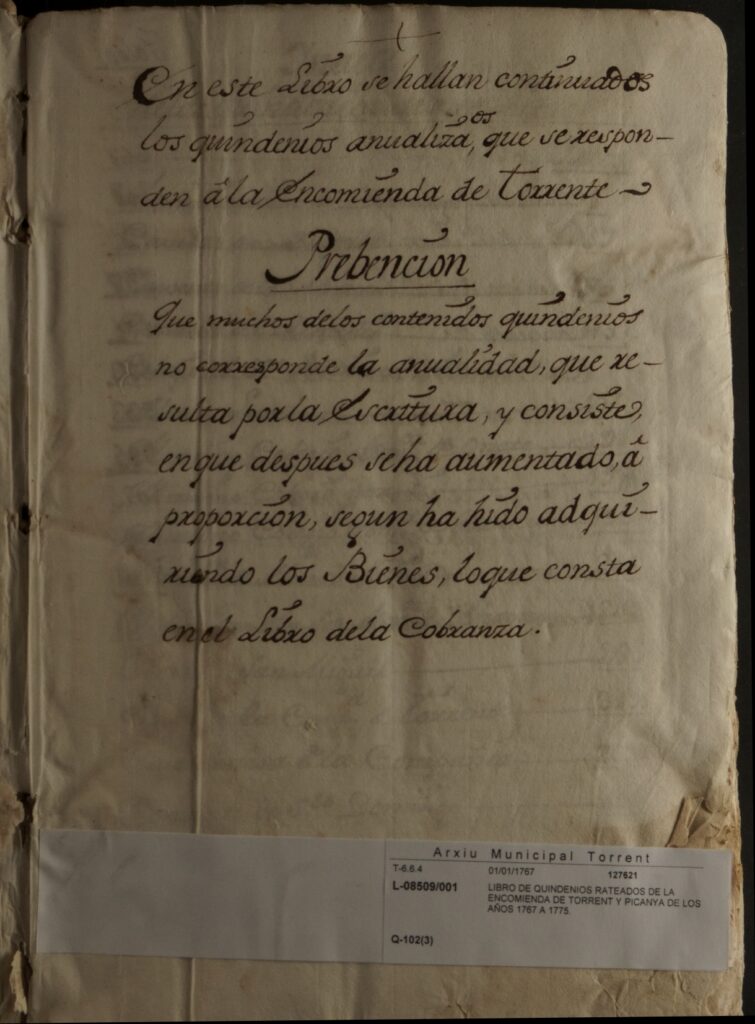 En este Libro se hallan continuados
los quindenios anualizaos, que se respon-
den â la Encomienda de Torrente
Prebencion
Que muchos delos contenidos quindenios
no corresponde la anualidad, que re-
sulta por la Escritura, y consiste,
enque despues seha aumentado, â
proporcion, segun ha hido adqui-
riendo los Bienes, loque consta
en el Libro dela Cobranza.
Arxiu Municipal Torrent
T-6.6.4 01/01/1767 127621
L-08509/001 LIBRO DE QUINDENIOS RATEADOS DE LA
ENCOMIENDA DE TORRENT Y PICANYA DE LOS
AÑOS 1767 A 1775.
Q-102(3)